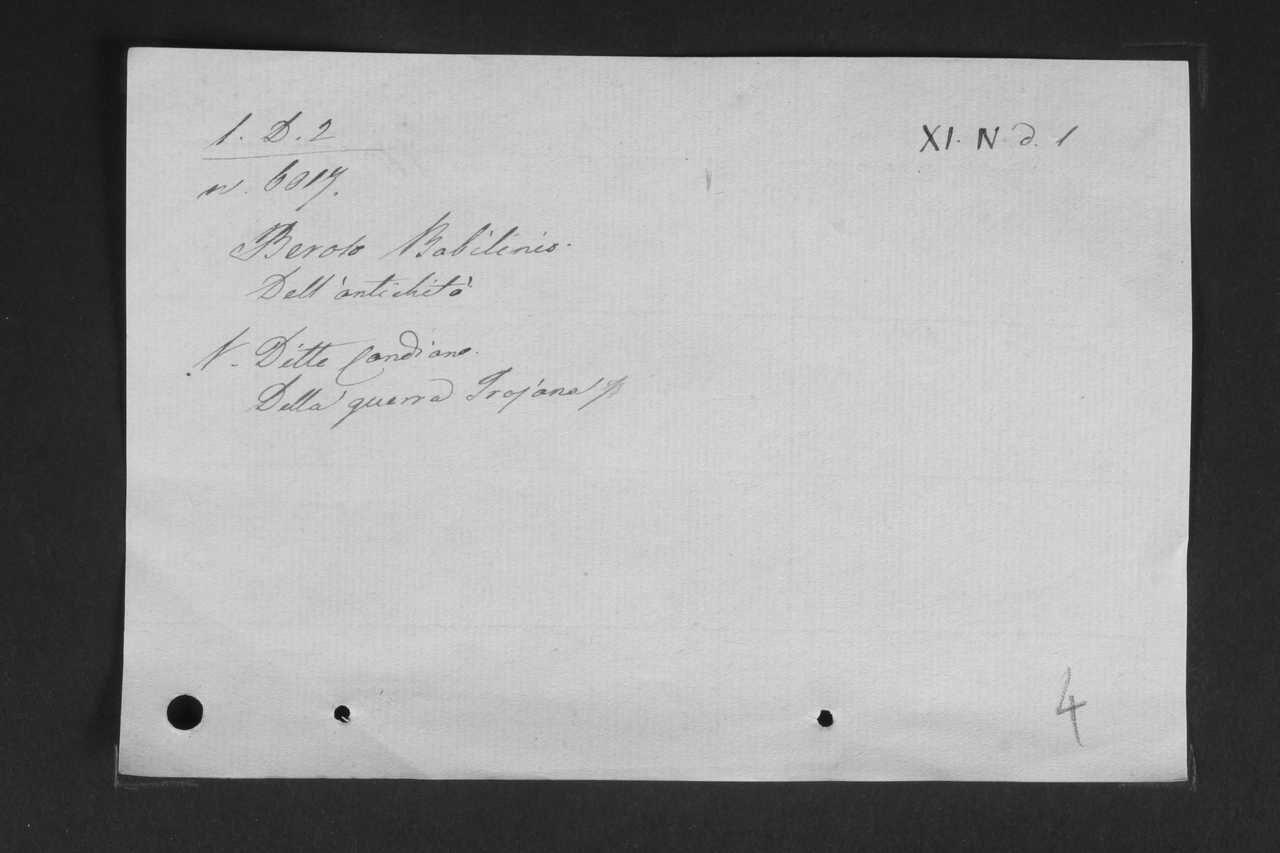 1. D. 2
XI. N d. 1
n. 6017.
Beroso Babilonio.
Dell'antichità
V. Ditte Candiano.
Della guerra Trojana
4